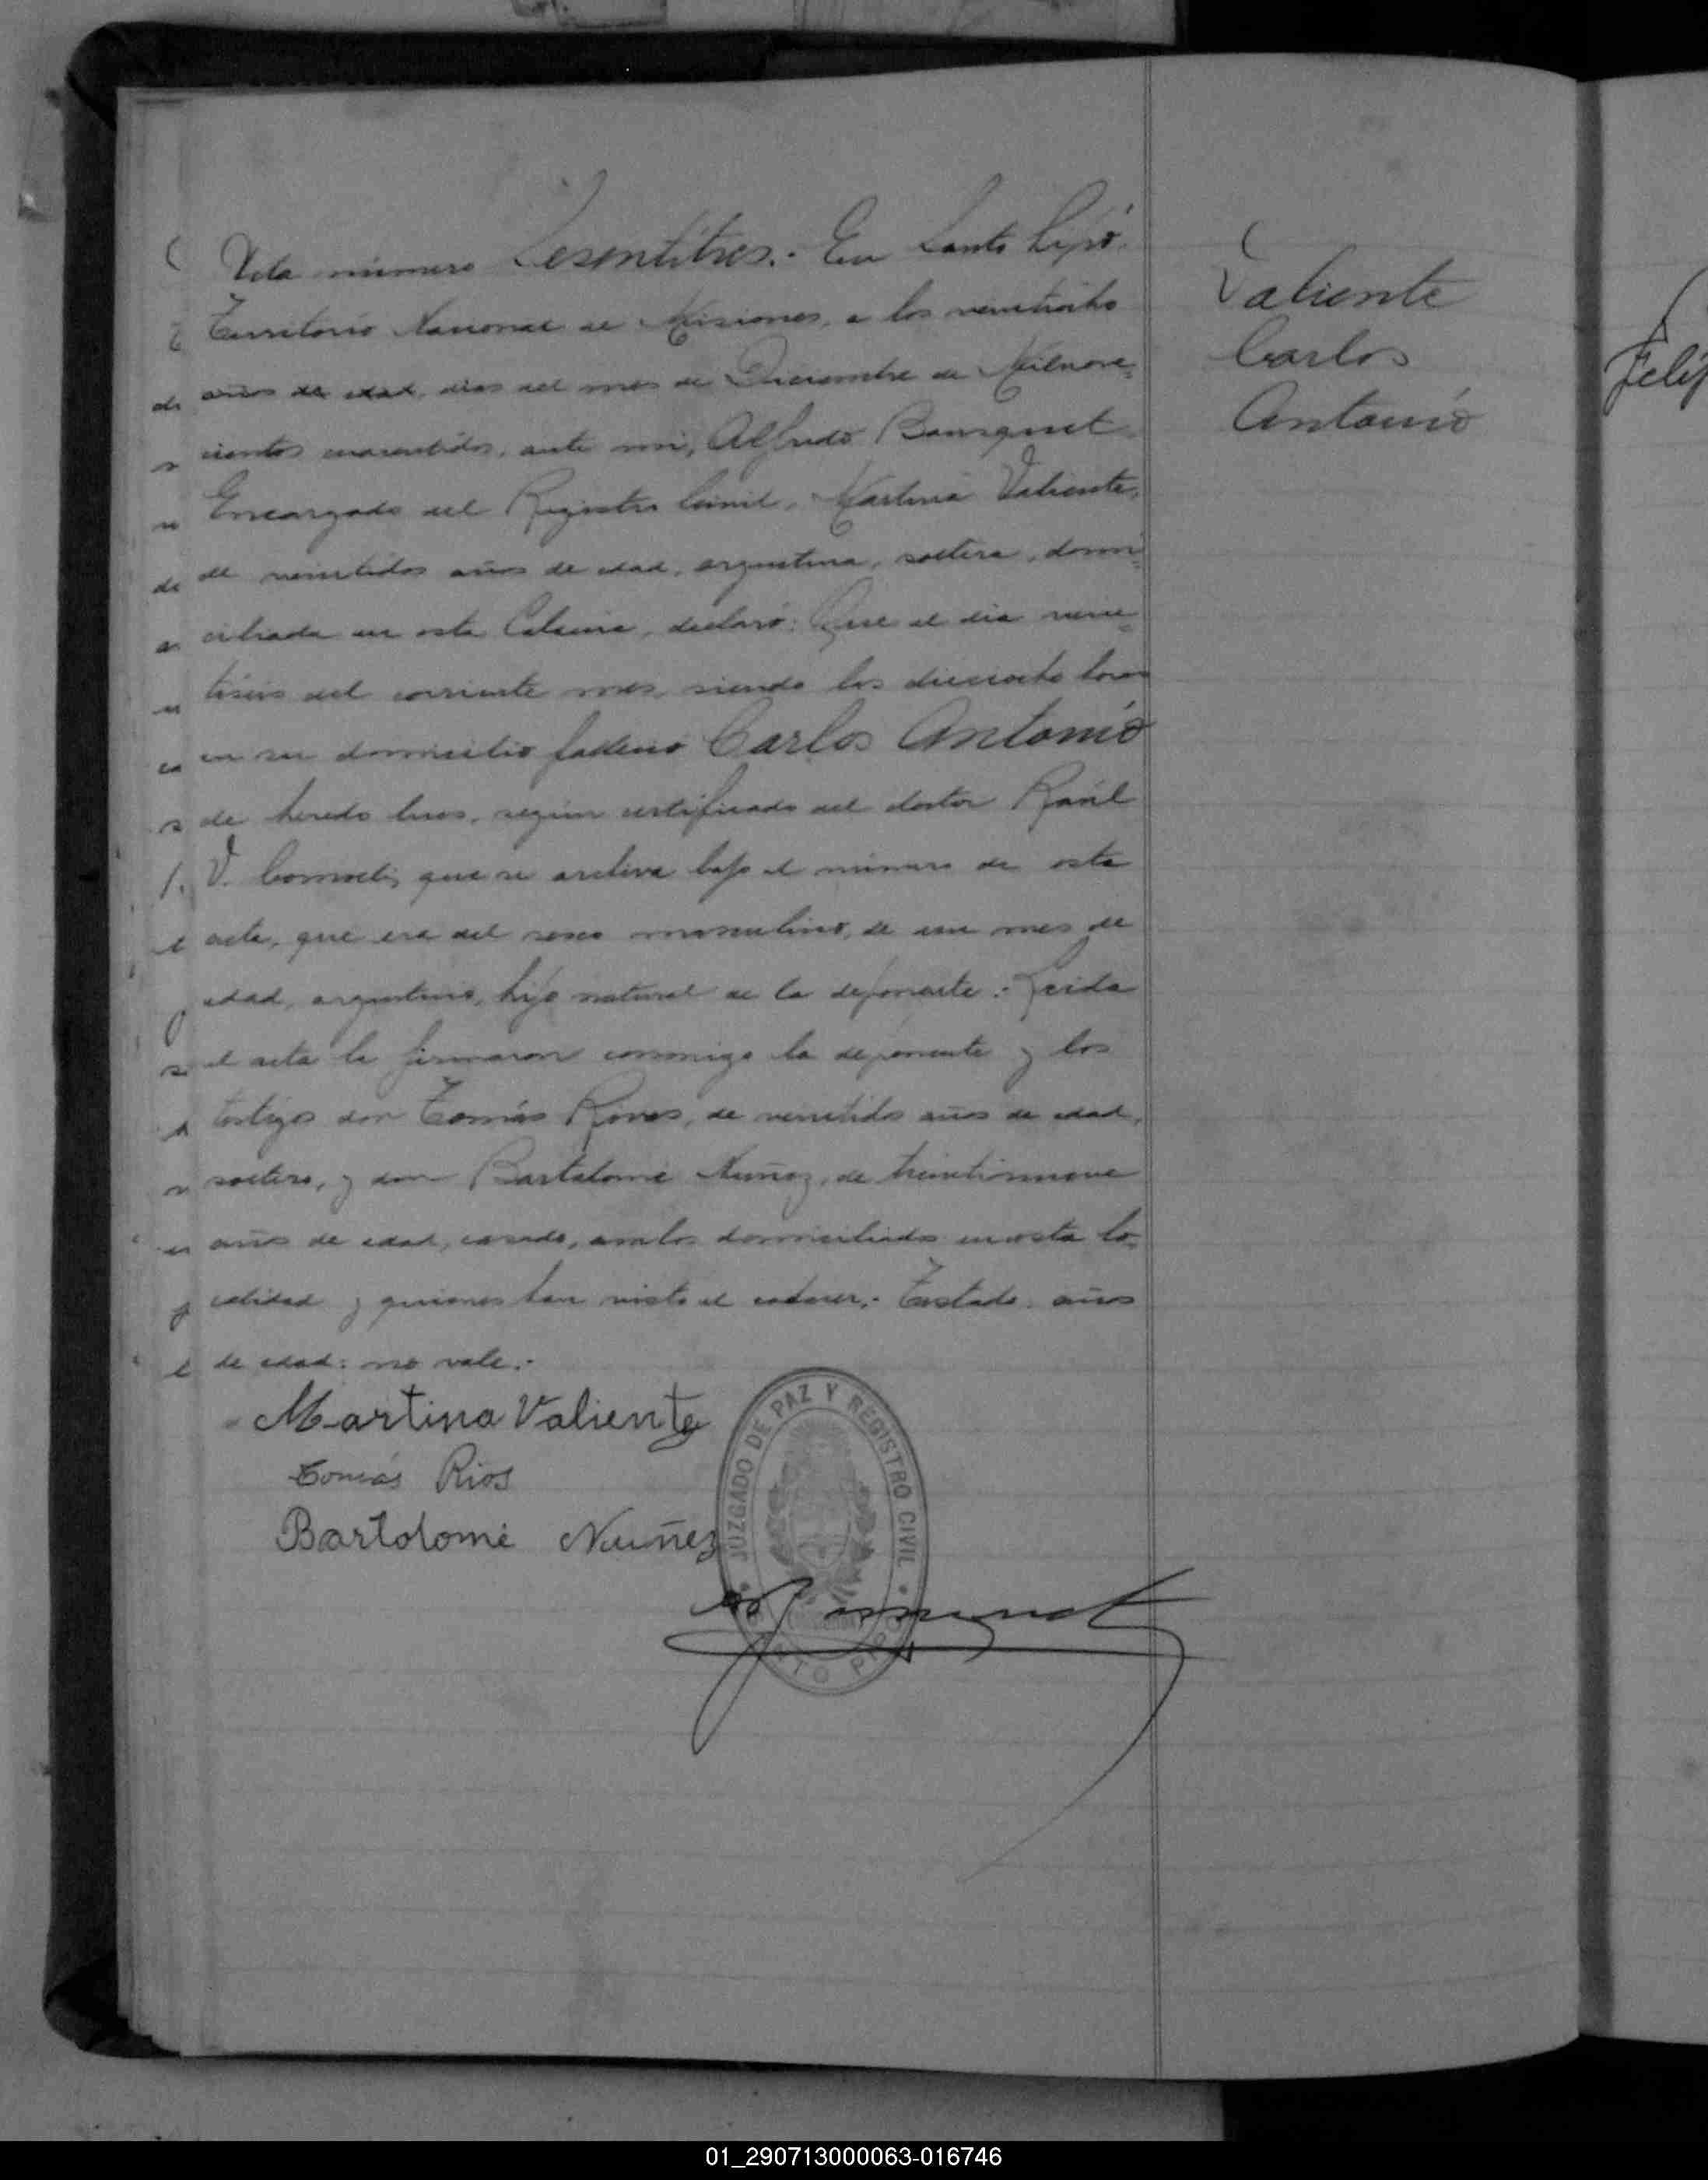 Acta número Sesentitres.- En Santo Pipó
Territorio Nacional de Misiones, a los veintiocho
años de edad, dias del mes de Diciembre de Milnove=
cientos cuarentidos, ante mi, Alfredo Bousquet
Encargado del Registro Civil, Martina Valiente,
de veintidos años de edad, argentina, soltera, domi=
ciliada en esta Colonia, declaró: Que el dia vein=
tiseis del corriente mes, siendo las dieciocho horas
en su domicilio falleció Carlos Antonio
de heredo lues, según certificado del doctor Raúl
V. que se archiva bajo el número de esta
acta, que era del sexo masculino, de un mes de
edad, argentino, hijo natural de la deponente.- Leida
el acta la firmaron conmigo la deponente y los
testigos don Tomás Rios, de veintidos años de edad,
soltero, y don Bartolomé Nuñez, de treintinueve
años de edad, casado, ambos domiciliados en esta lo=
calidad y quienes han visto el cadaver.- Testado: años
de edad: no vale.-
Martina Valiente
Tomás Rios
Bartolomé Nuñez
JUZGADO DE PAZ Y REGISTRO CIVIL
SANTO PIPÓ
Valiente
Carlos
Antonio
Felip
01_290713000063-016746